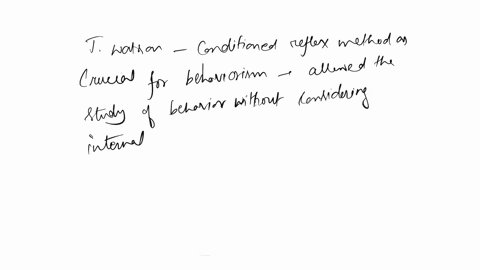 J. Watson – Conditioned reflex method as
Crucial for behaviorism → allowed the
study of behavior without considering
internal